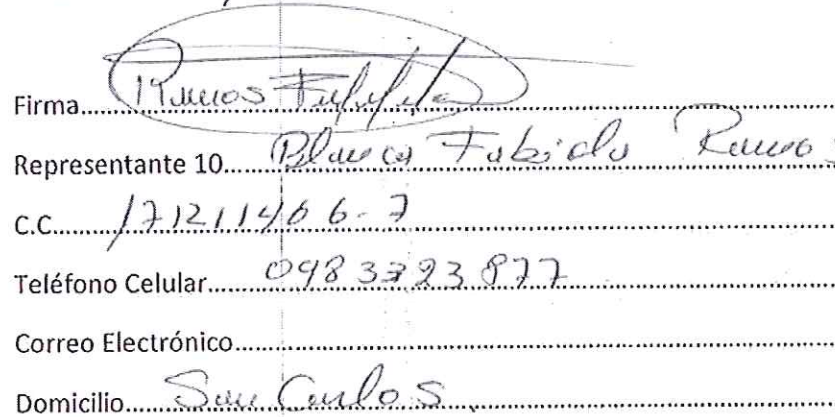 Firma.....Ramos
Representante 10.....Blanca Fabiola Ramos
C.C.....171211466-7
Teléfono Celular.....0983323877
Correo Electrónico.....
Domicilio.....San Carlos